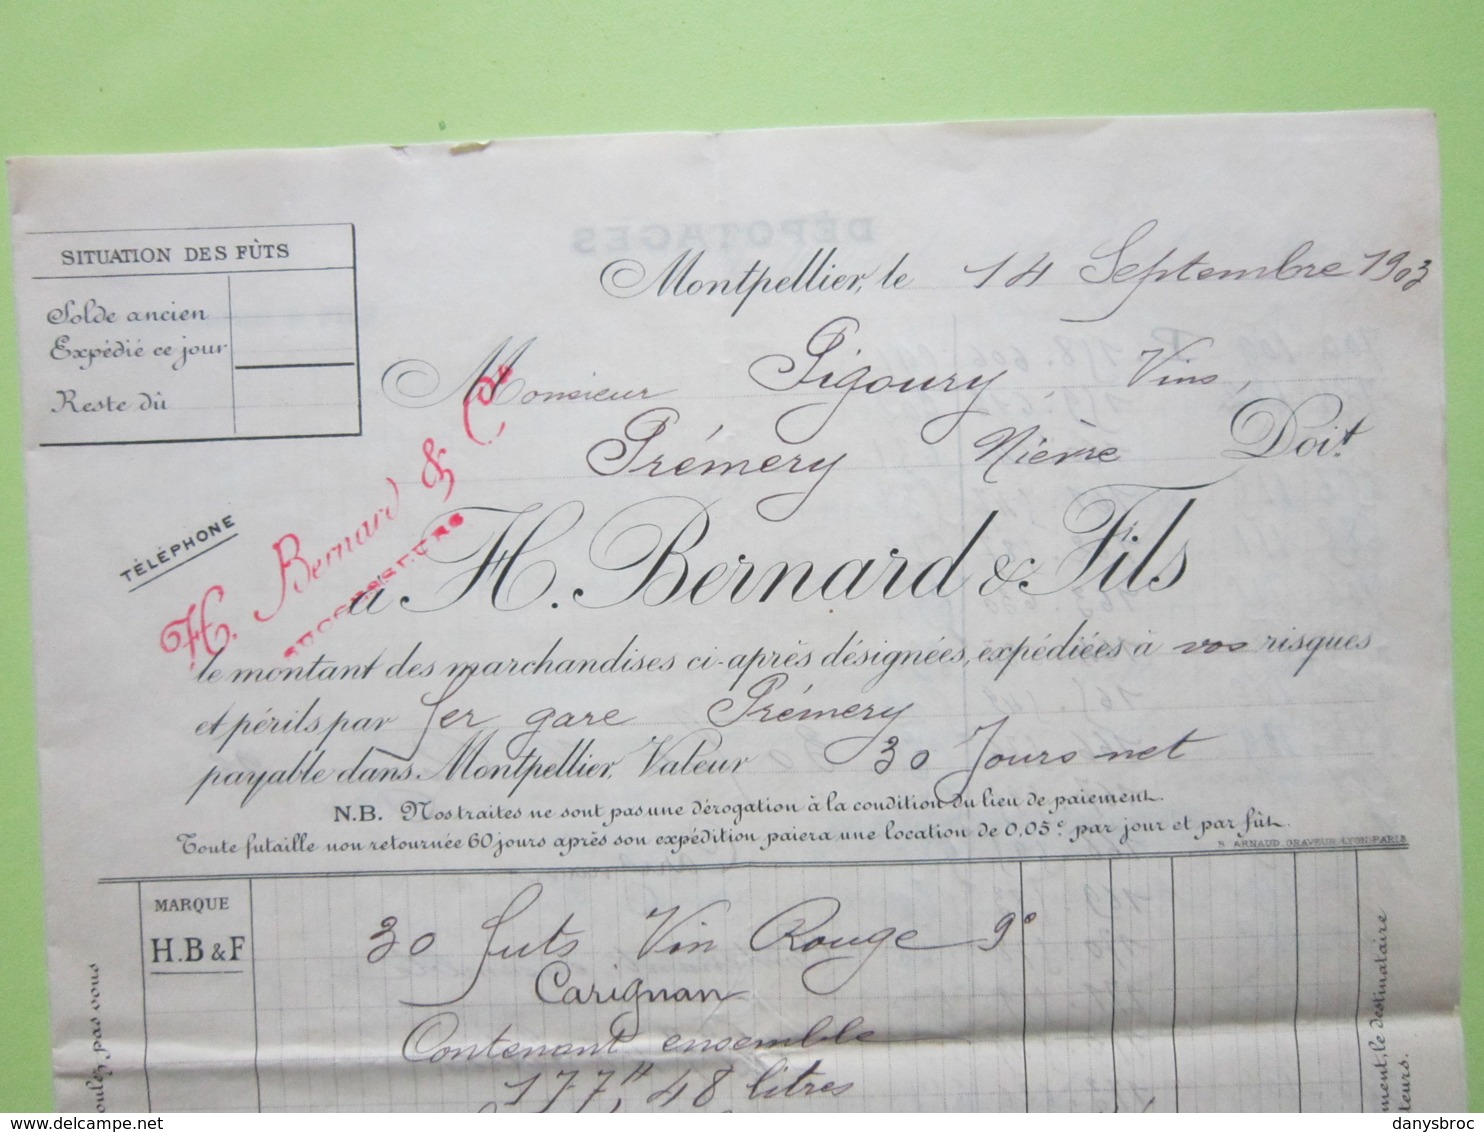 SITUATION DES FÙTS
Solde ancien
Expédié ce jour
Reste dû
Montpellier, le 14 Septembre 1903
Monsieur Pigoury Vins,
Prémery Nièvre Doit
TÉLÉPHONE
H. Bernard & Cie
SUCCESSEURS
à H. Bernard & Fils
le montant des marchandises ci-après désignées, expédiées à vos risques
et périls par fer gare Prémery
payable dans Montpellier, Valeur 30 Jours net
N.B. Nos traites ne sont pas une dérogation à la condition du lieu de paiement.
Toute futaille non retournée 60 jours après son expédition paiera une location de 0,05c par jour et par fût.
N. ARNAUD, GRAVEUR LYON-PARIS
MARQUE
H.B & F
30 futs Vin Rouge 9°
Carignan
Contenant ensemble
177H,48 litres
DÉPOTAGES
oulez pas vous
ment, le destinataire
teurs.
https://www.delcampe.net
danysbroc